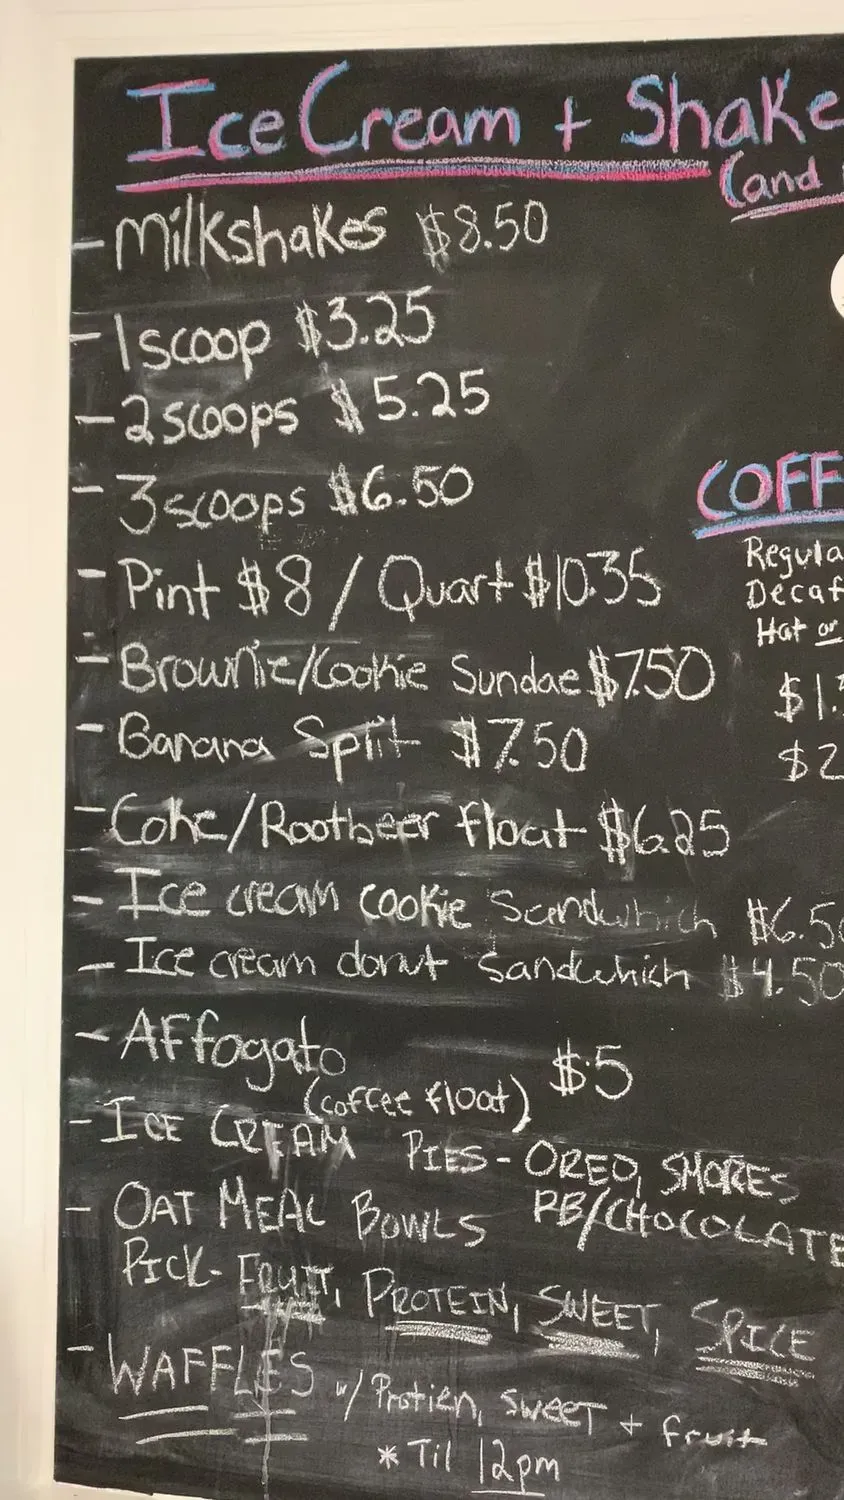 Ice Cream + Shake
(and
- Milkshakes $8.50
- 1 scoop $3.25
- 2 scoops $5.25
- 3 scoops $6.50
COFF
Regula
Decaf
Hot or
$1.
$2
- Pint $8 / Quart $10.35
- Brownie/Cookie Sundae $7.50
- Banana Split $7.50
- Coke/Rootbeer float $6.25
- Ice cream cookie Sandwhich $6.50
- Ice cream donut Sandwhich $4.50
- Affogato $5
(coffee float)
- ICE CREAM PIES - OREO, SMORES
PB/CHOCOLATE
- OAT MEAL BOWLS
PICK - FRUIT, PROTEIN, SWEET, SPICE
- WAFFLES w/ Protien, sweet + fruit
* Til 12pm